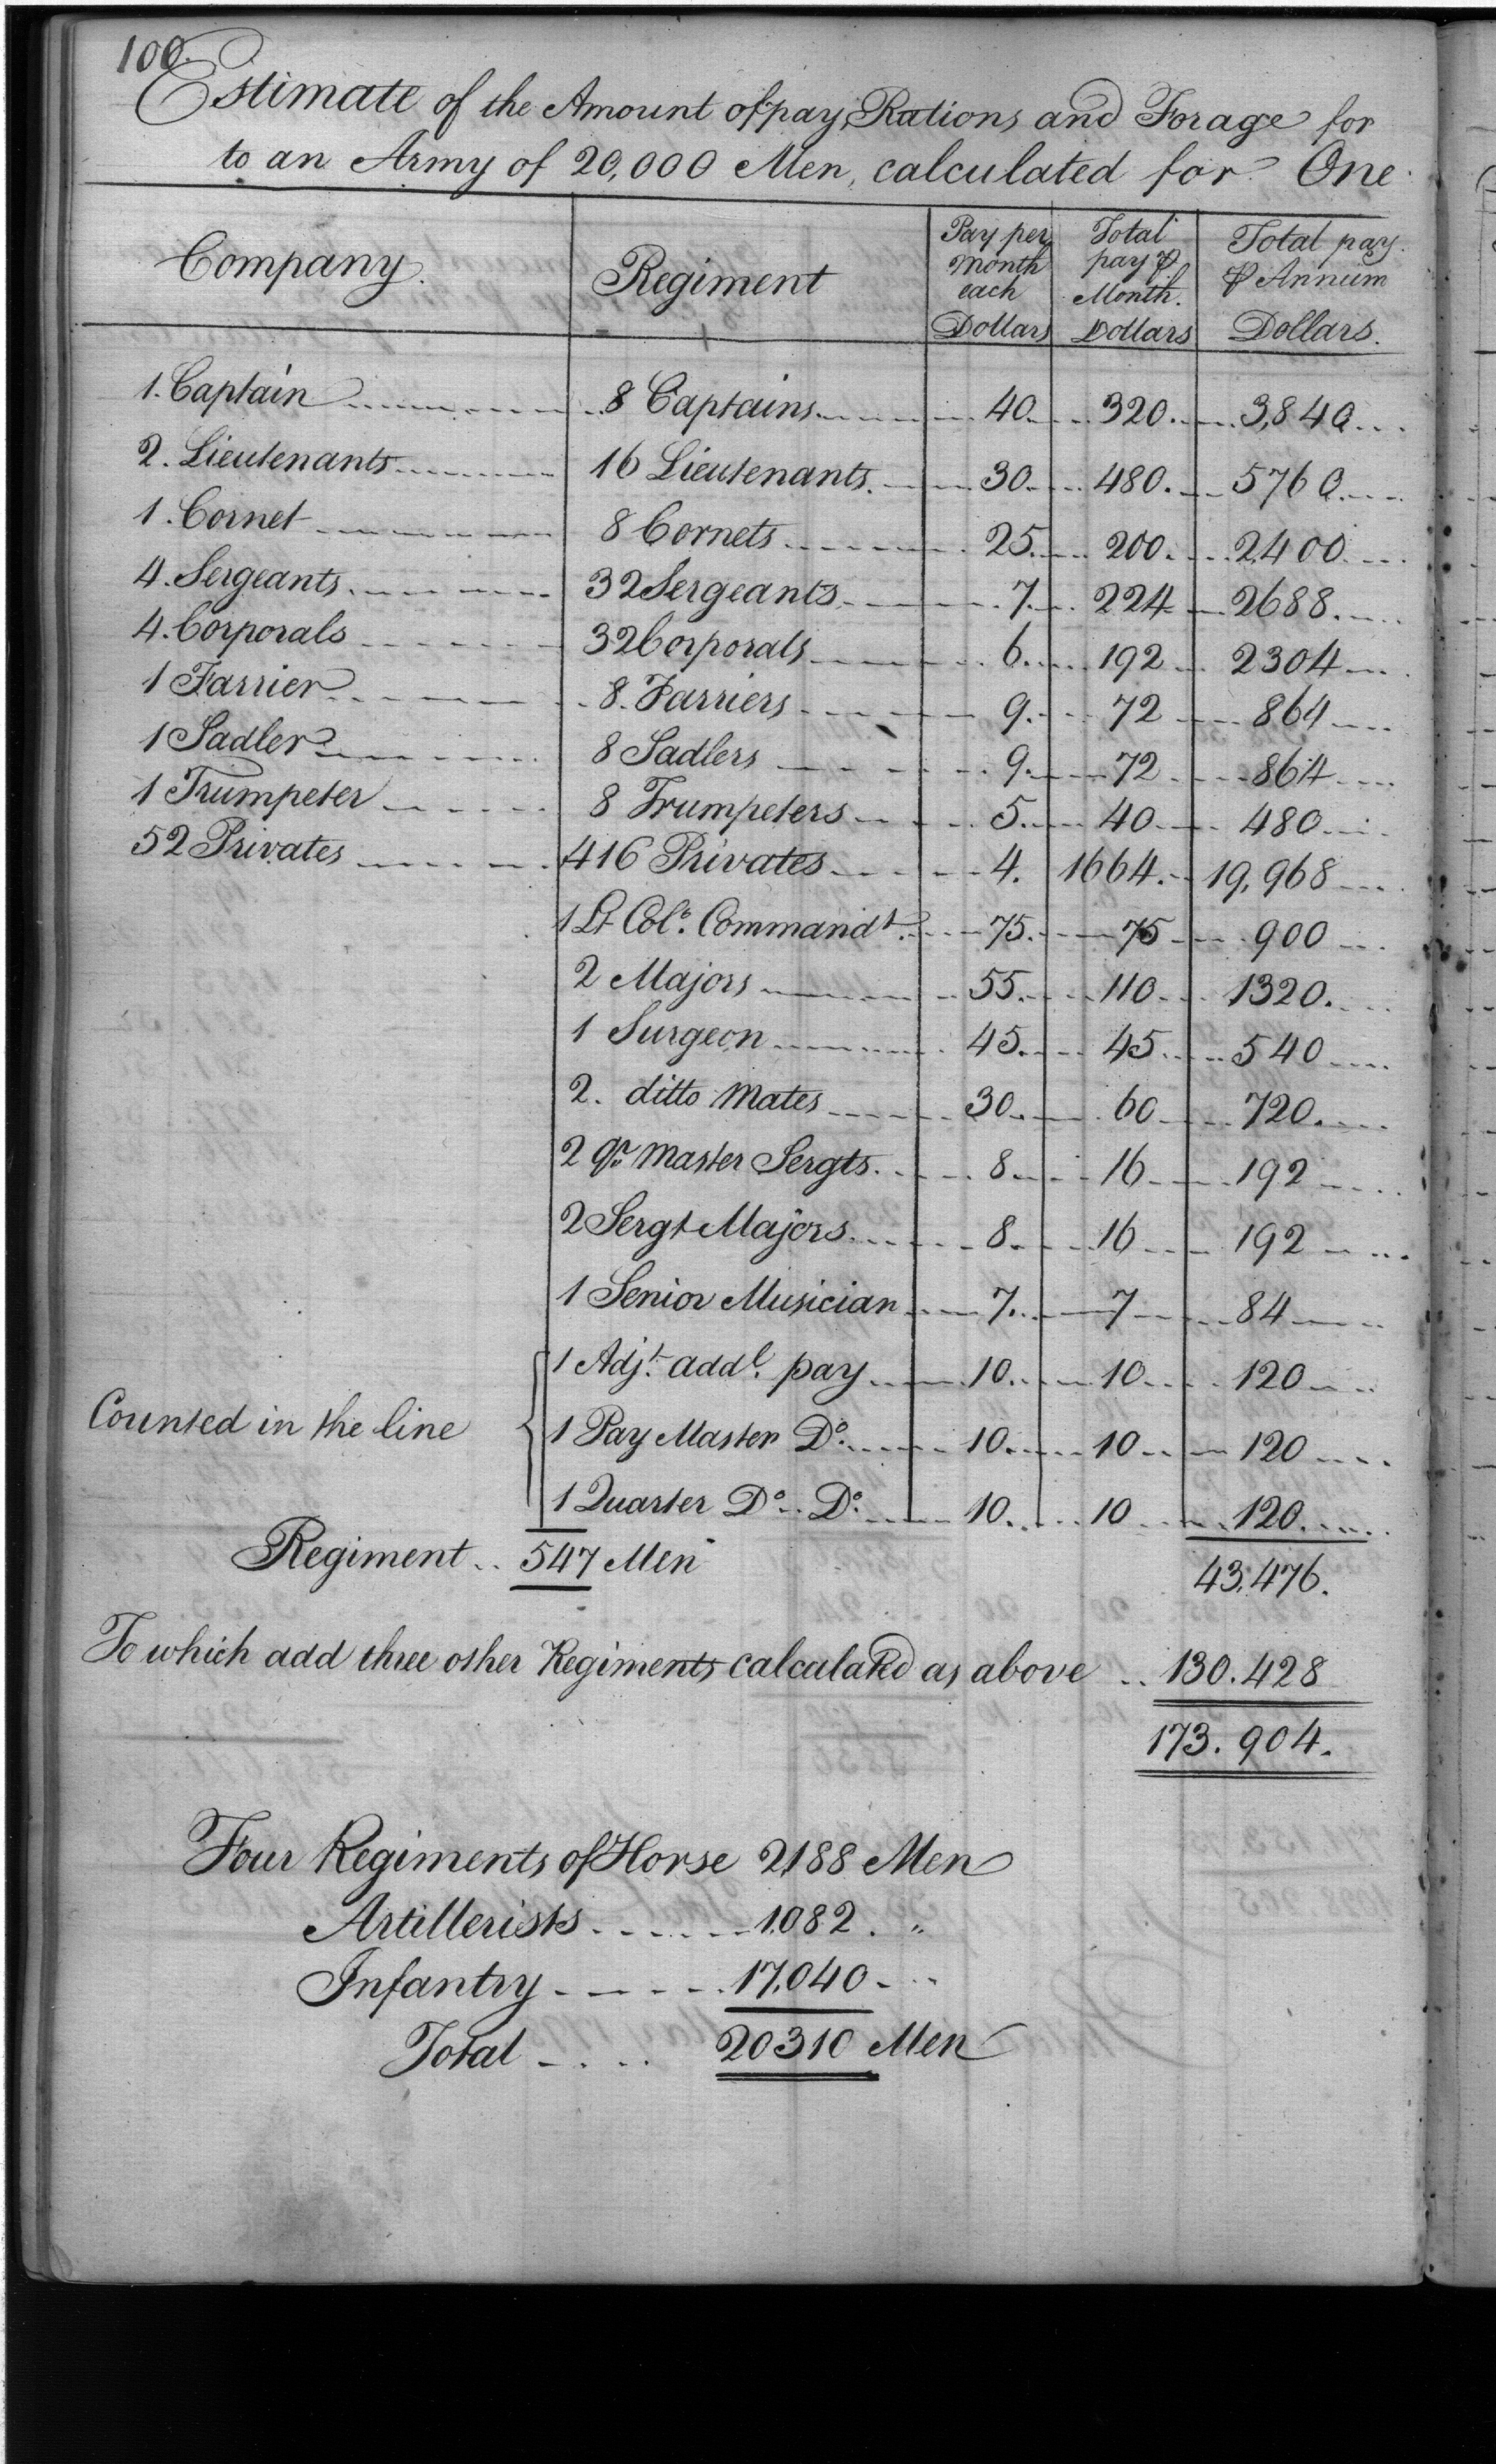 100.
Estimate of the Amount of pay, Rations and Forage for
to an Army of 20,000 Men, calculated for One
Company. Regiment Pay per month each Dollars Total pay ⅌ Month. Dollars Total pay ⅌ Annum Dollars.
1. Captain 8 Captains 40 320 3,840
2. Lieutenants 16 Lieutenants 30 480 5760
1. Cornet 8 Cornets 25 200 2,400
4. Sergeants 32 Sergeants 7 224 2688
4. Corporals 32 Corporals 6 192 2304
1 Farrier 8. Farriers 9 72 864
1 Sadler 8 Sadlers 9 72 864
1 Trumpeter 8 Trumpeters 5 40 480
52 Privates 416 Privates 4. 1664 19,968
1 Lt Colo. Commandt. 75 75 900
2 Majors 55 110 1320
1 Surgeon 45 45 540
2. ditto Mates 30 60 720
2 Qr Master Sergts. 8 16 192
2 Sergt Majors 8 16 192
1 Senior Musician 7 7 84
1 Adjt. addl. pay 10 10 120
Counted in the line 1 Pay Master Do. 10 10 120
1 Quarter Do. Do. 10 10 120
Regiment 547 Men 43,476.
To which add three other Regiments calculated as above 130.428
173.904.
Four Regiments of Horse 2188 Men
Artillerists 1,082. "
Infantry 17,040 "
Total 20310 Men